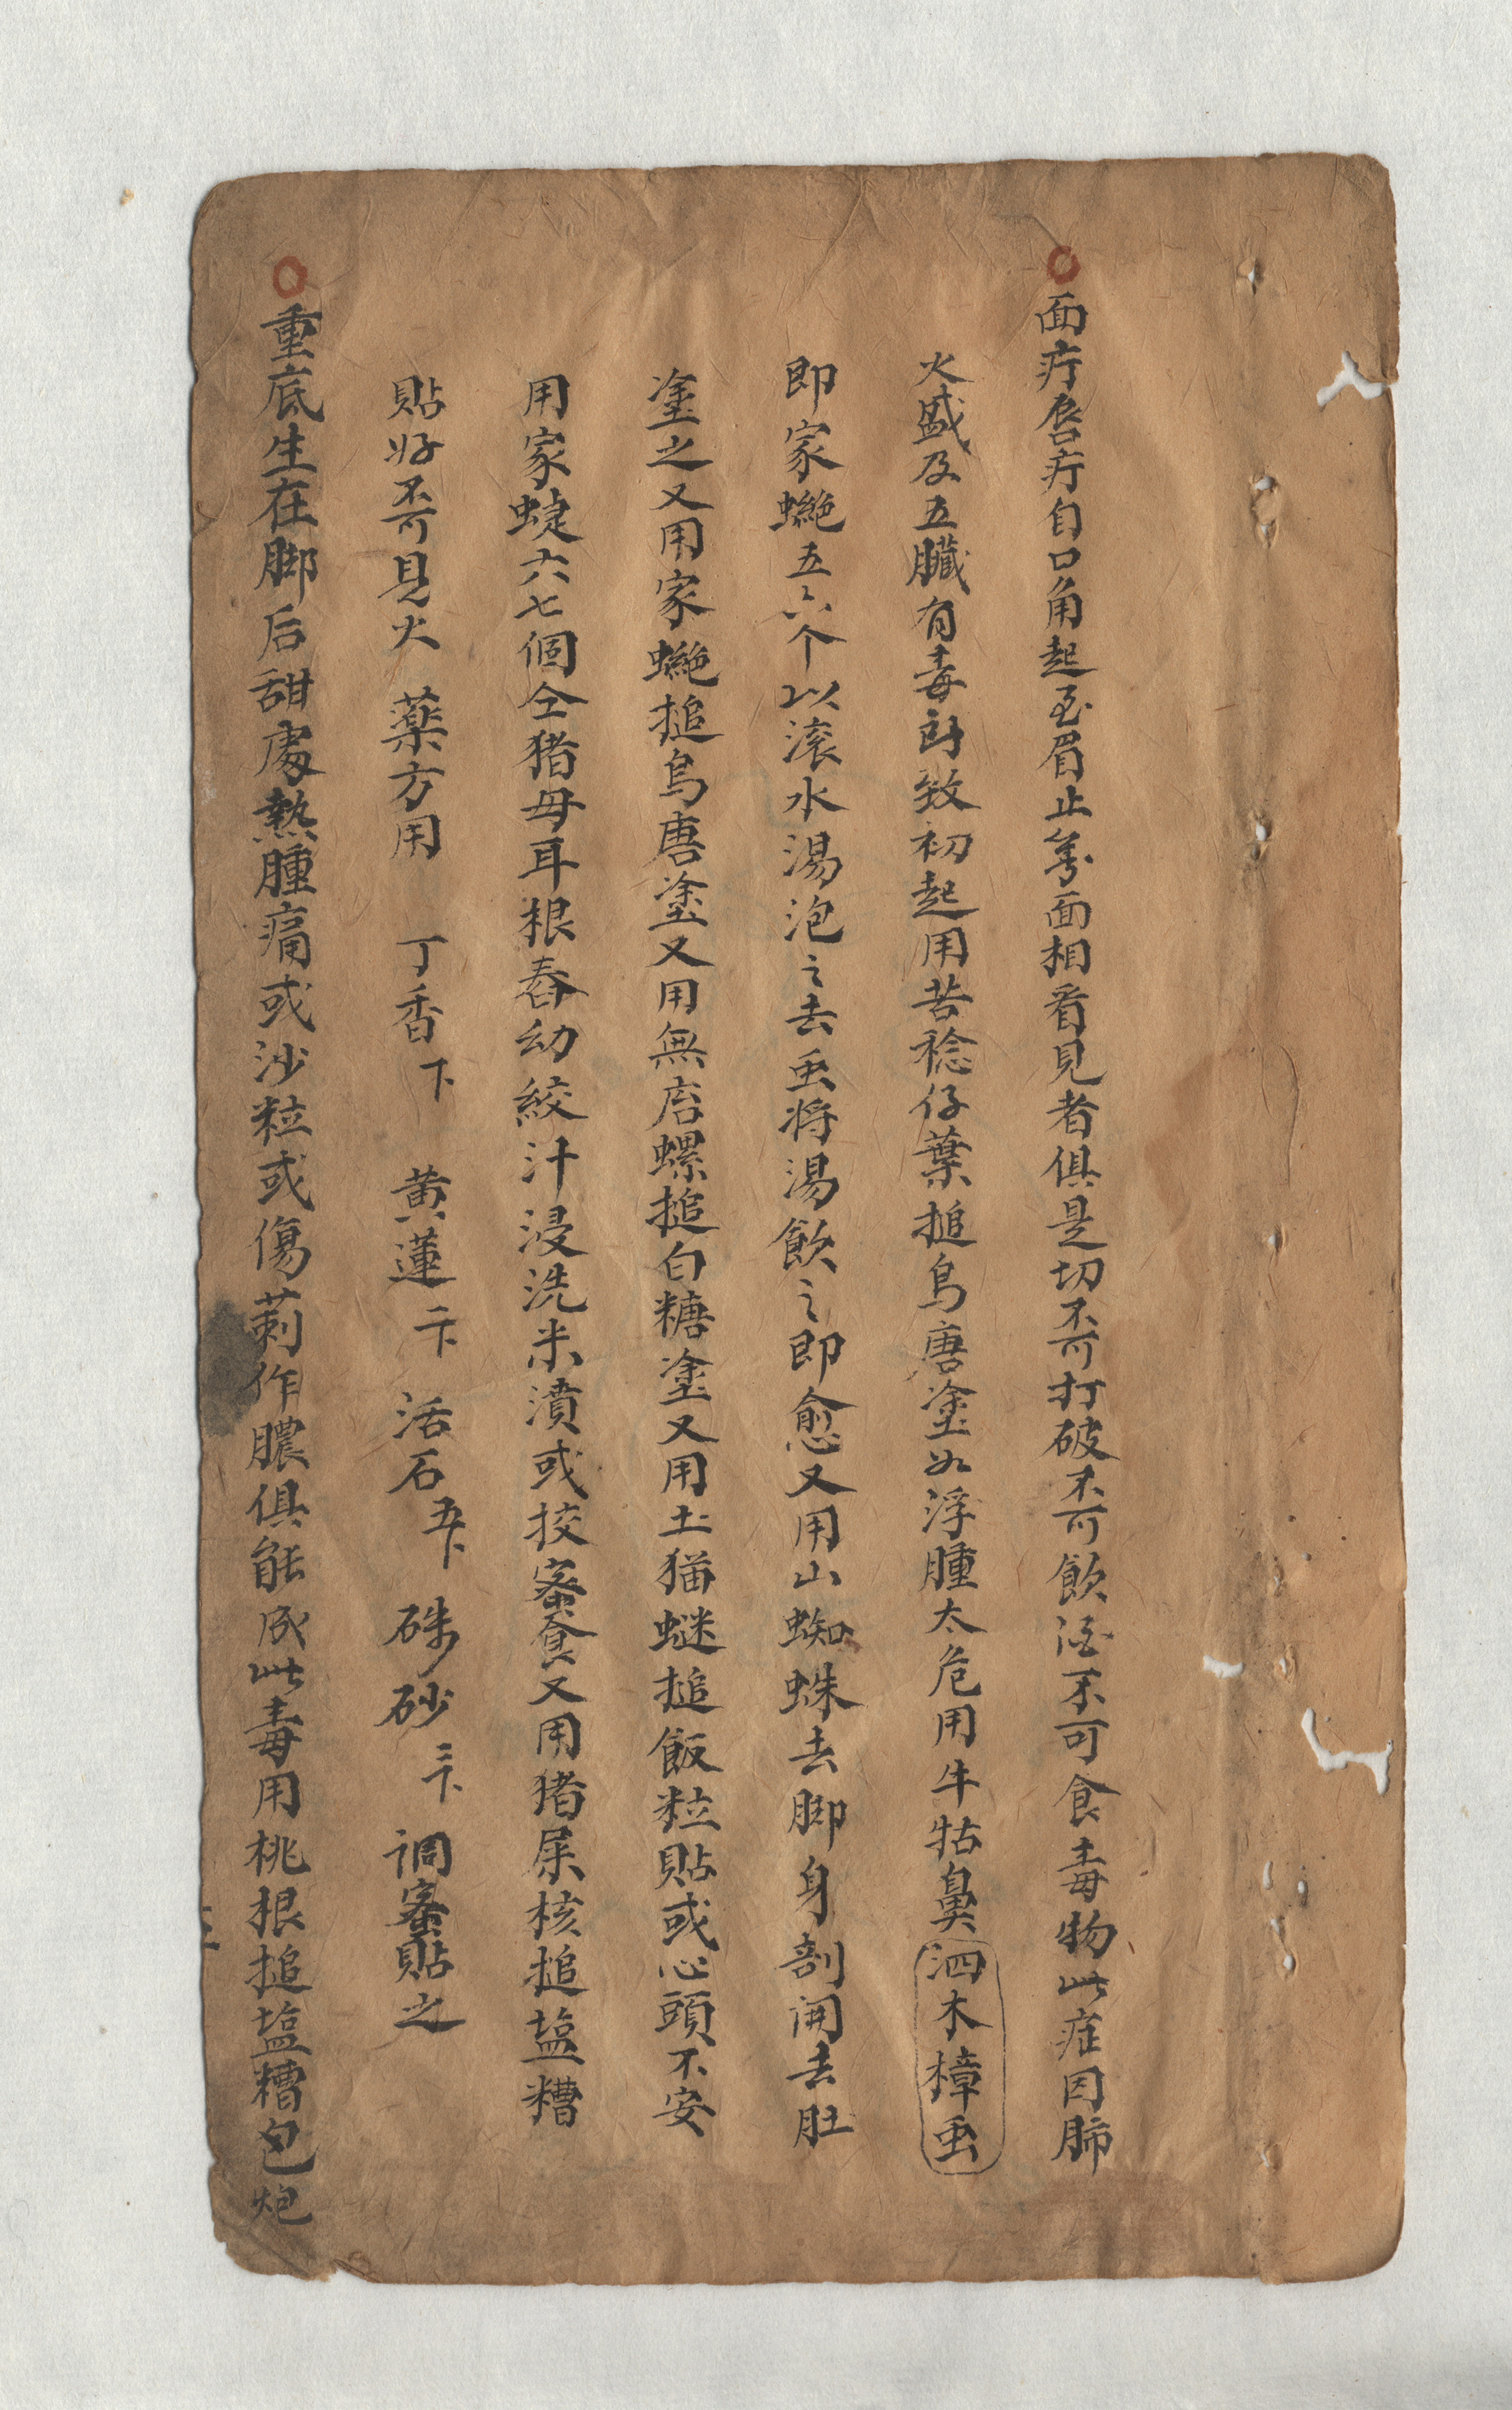 面疔唇疔自口角起至眉止等面相看見者俱是切不可打破不可飲酒不可食毒物此症因肺
火盛及五臟有毒所致初起用苦稔仔葉搥烏唐塗如浮腫太危用牛牯鼻泗木樟虫
即家蠽五六个以滚水湯泡之去虫将湯飲之即愈又用山蜘蛛去脚身剖開去肚
塗之又用家搥烏唐塗又用無启螺搥白糖塗又用土猫蟋搥飯粒貼或心頭不安
用家六七個仝猪母耳根舂幼絞汁浸洗米濆或挍蜜食又用猪屎核搥塩糟
貼好不可見火 藥方用 丁香卜 黄蓮二卜 活石五卜 硃砂三卜 調蜜貼之
重底生在脚后甜處熱腫痛或沙粒或傷莿作膿俱能成此毒用桃根搥塩糟包炮